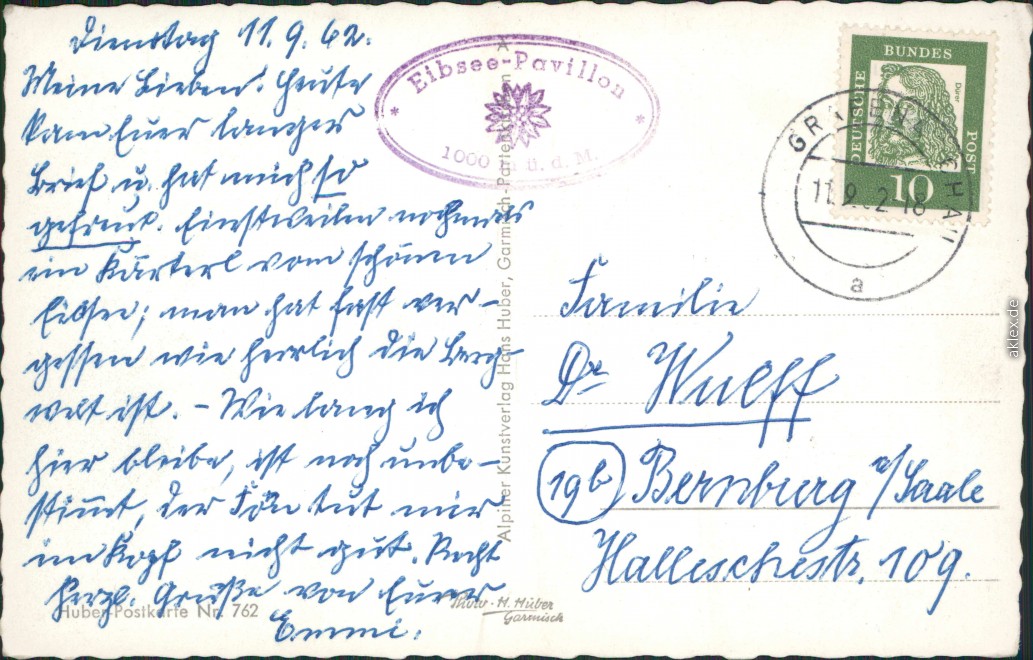 Dienstag 11.9.62.
Meine Lieben! Heute
kam Euer langer
Brief u. hat mich so
gefreut. Einstweilen nochmals
ein Kärterl vom schönen
Eibsee; man hat fast ver-
gessen wie herrlich die Berg-
welt ist. – Wie lang ich
hier bleibe, ist noch unbe-
stimmt, der Fön tut mir
im Kopf nicht gut. Recht
herzl. Grüße von Eurer
Emmi.
Huber-Postkarte Nr. 762
* Eibsee-Pavillon *
1000 m ü. d. M.
Alpiner Kunstverlag Hans Huber, Garmisch-Partenkirchen
H. Huber
Garmisch
DEUTSCHE
BUNDES
POST
Dürer
10
11.9. 2-18
a
Familie
Dr Wulff
(19b) Bernburg a/Saale
Halleschestr. 109.
aklex.de